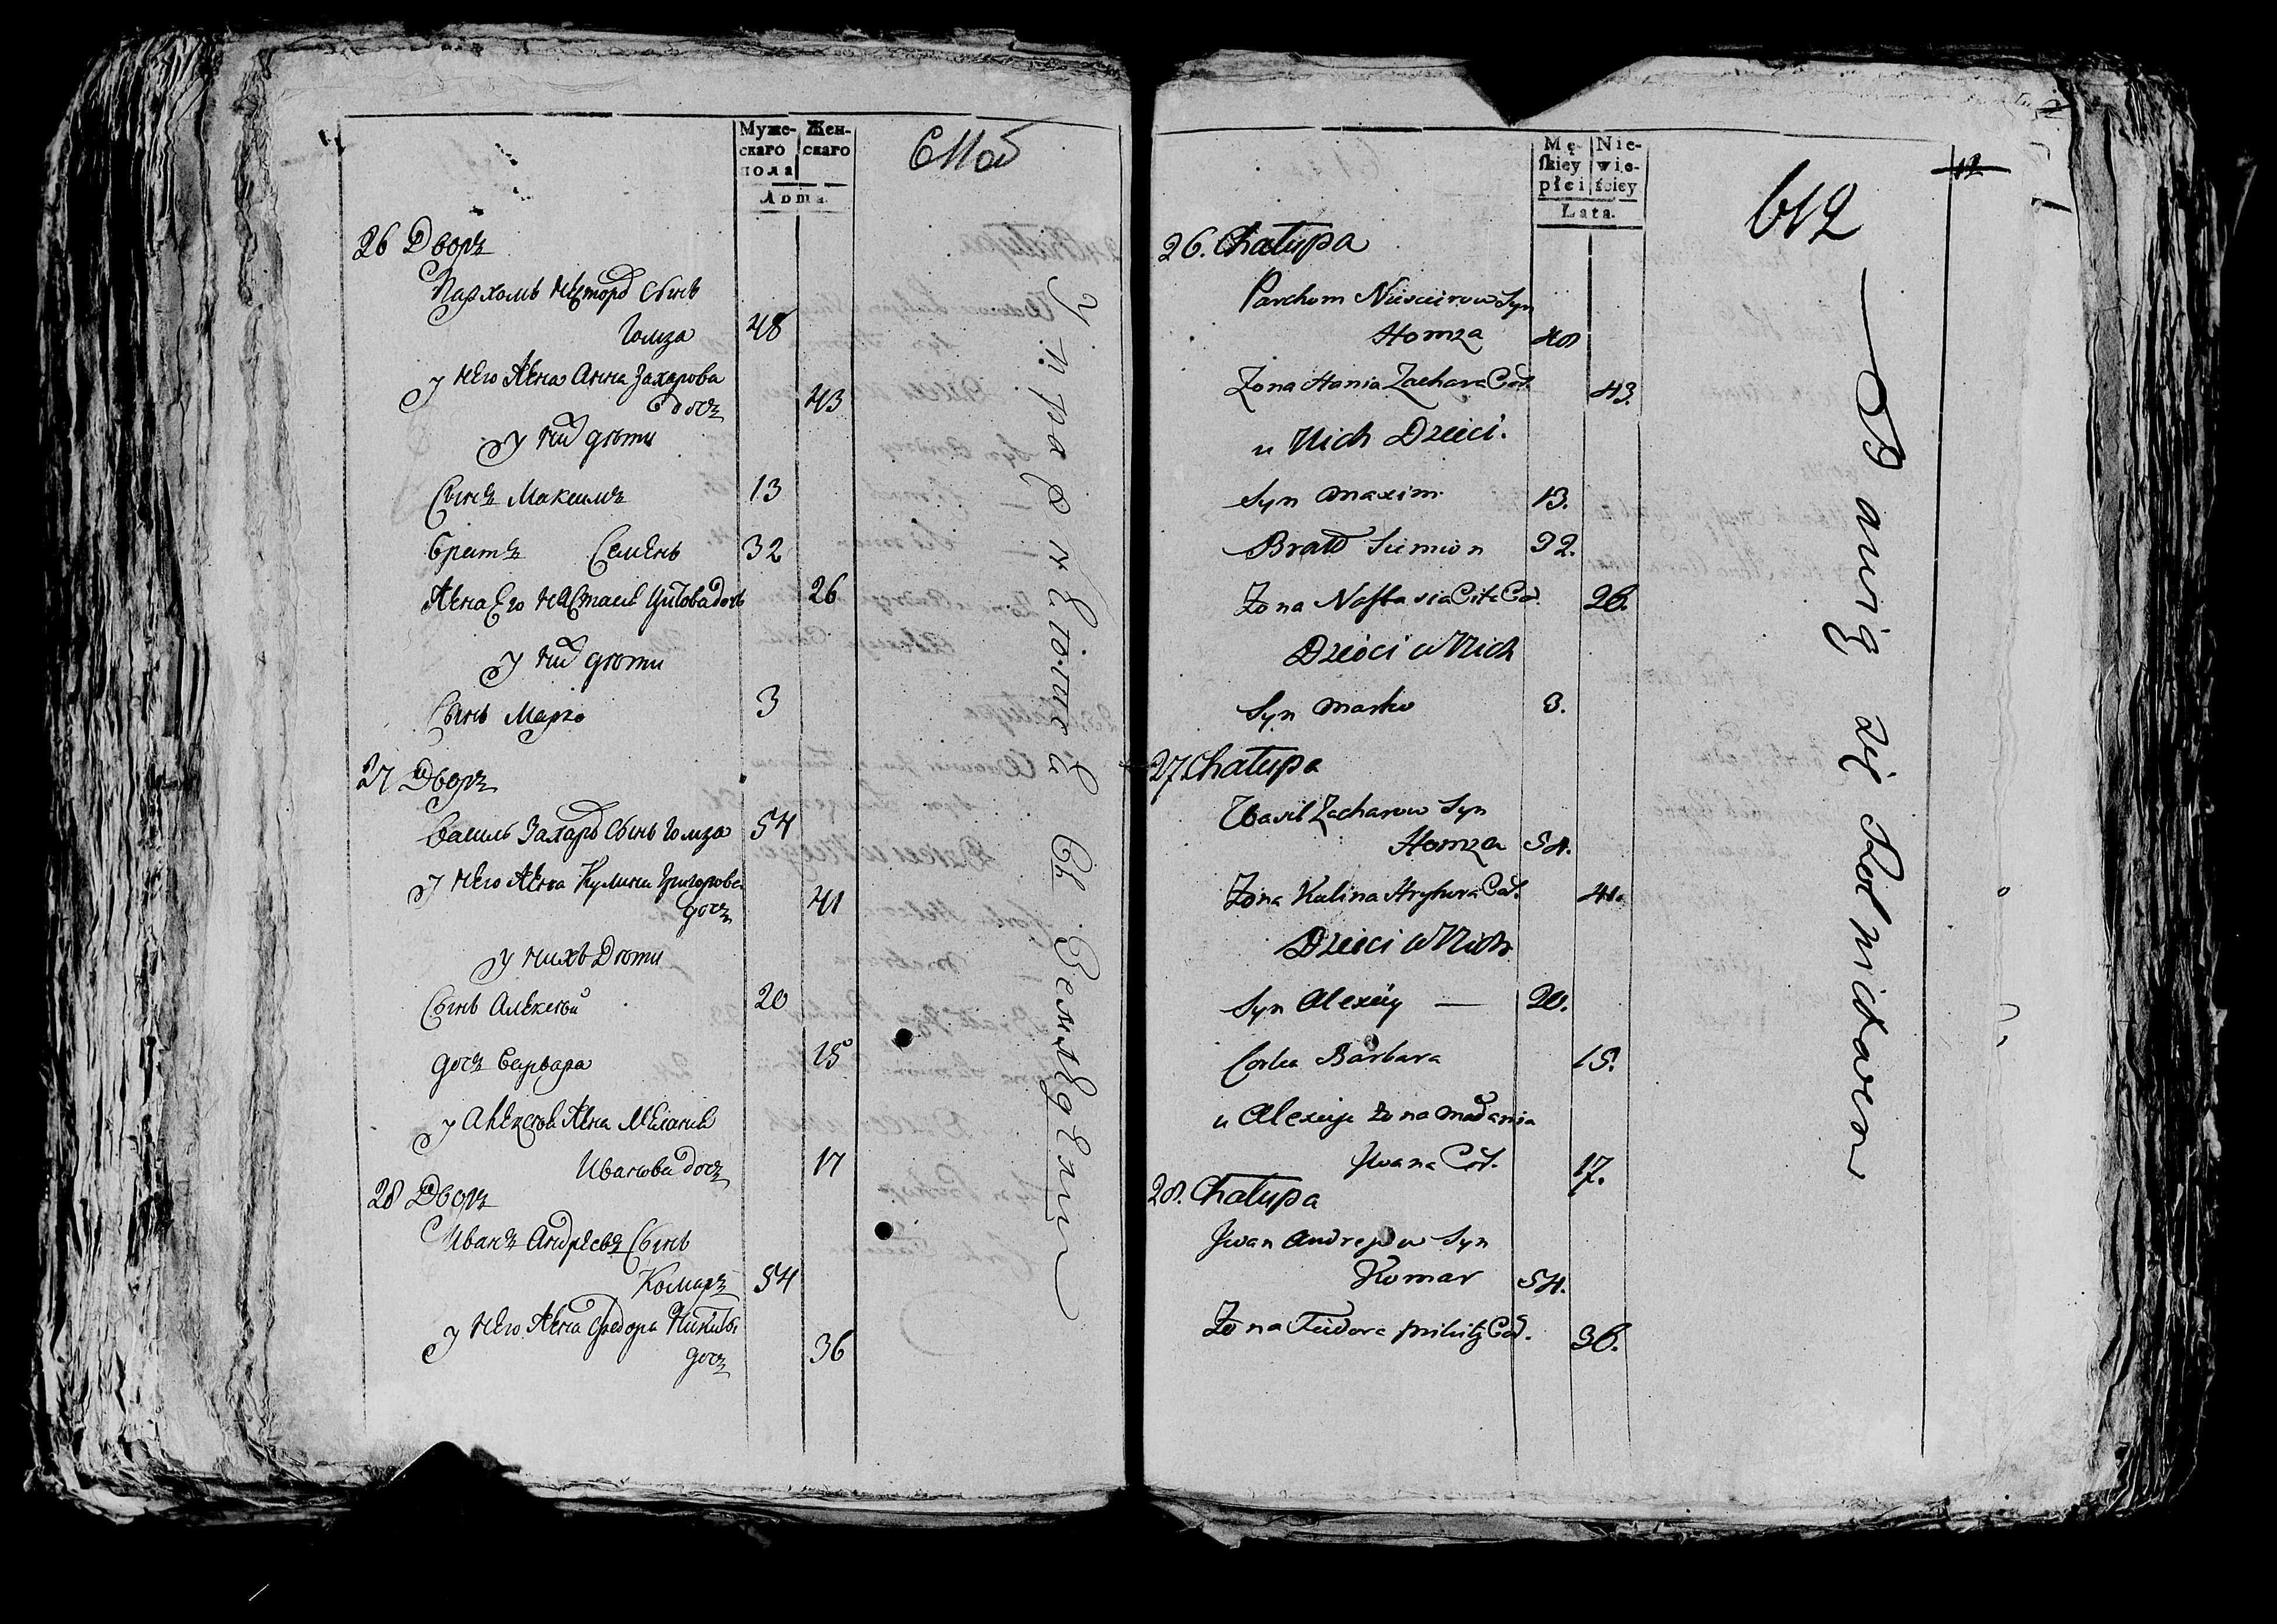 Муже-
скаго
пола
Жен-
скаго
Лѣта.
611об
26 Дворъ
Пархомъ Несторо Сынъ
Гомза 48
у него Жена Анна Захарова
дочъ 43
у них дѣти
Сынъ Максимъ 13
братъ Семенъ 32
Жена Его Настася Цитова дочь 26
у них дѣти
Сынъ Марко 3
27 Дворъ
Василь Захаро Сынъ Гомза 54
у него Жена Кулина Григорова
дочъ 41
у нихъ Дѣти
Сынъ Алексѣй 20
дочъ Варвара 15
у Алексѣя Жена Мелания
Иванова дочъ 17
28 Дворъ
Иванъ Андреевъ Сынъ
Комаръ 54
у него Жена Федора Никит.
дочъ 36
Управлѣнию
Mę-
skiey
płci
Nie-
wie-
ściey
Lata.
612
12
26. Chałupa
Parchom Niescierow Syn
Homza 48
Żona Hania Zachara Cór. 43.
u Nich Dzieci.
Syn Maxim 13.
Bratt Siemion 32.
Żona Nastasia Cita Cór. 26.
Dzieci u Nich
Syn Marko 3.
27. Chałupa
Wasil Zacharow Syn
Homza 54.
Żona Kulina Hryhora Cór. 41.
Dzieci u Nich
Syn Alexiey — 20.
Corka Barbara 15.
u Alexieja Żona Madania
Jwana Cór. 17.
28. Chałupa
Jwan Andrejew Syn
Komar 54.
Żona Fiedora Mikity Cór. 36.